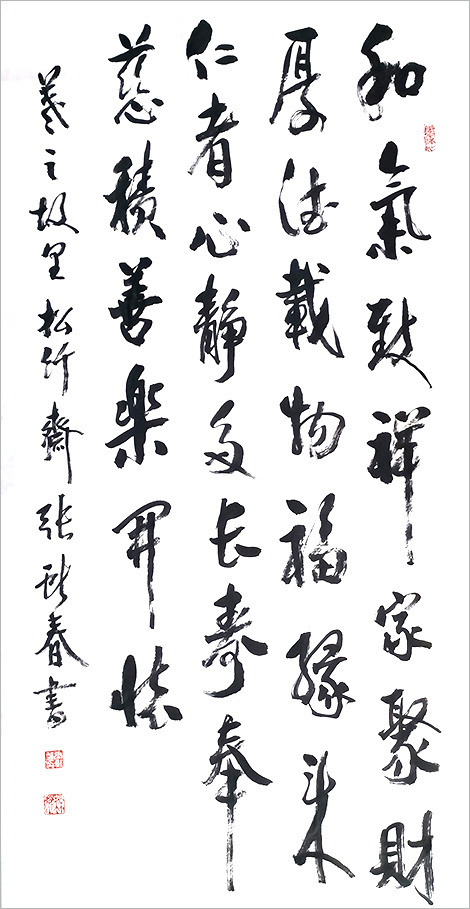 和氣致祥家聚財
厚德載物福緣來
仁者心靜多长寿奉
慈積善樂開懷
羲之故里松竹齋張春書